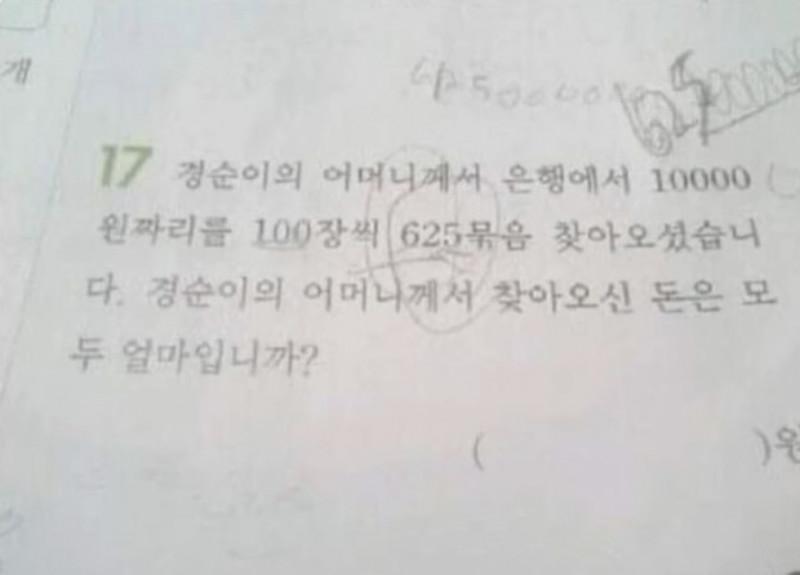 개
17 경순이의 어머니께서 은행에서 10000
원짜리를 100장씩 625묶음 찾아오셨습니
다. 경순이의 어머니께서 찾아오신 돈은 모
두 얼마입니까?
( )원